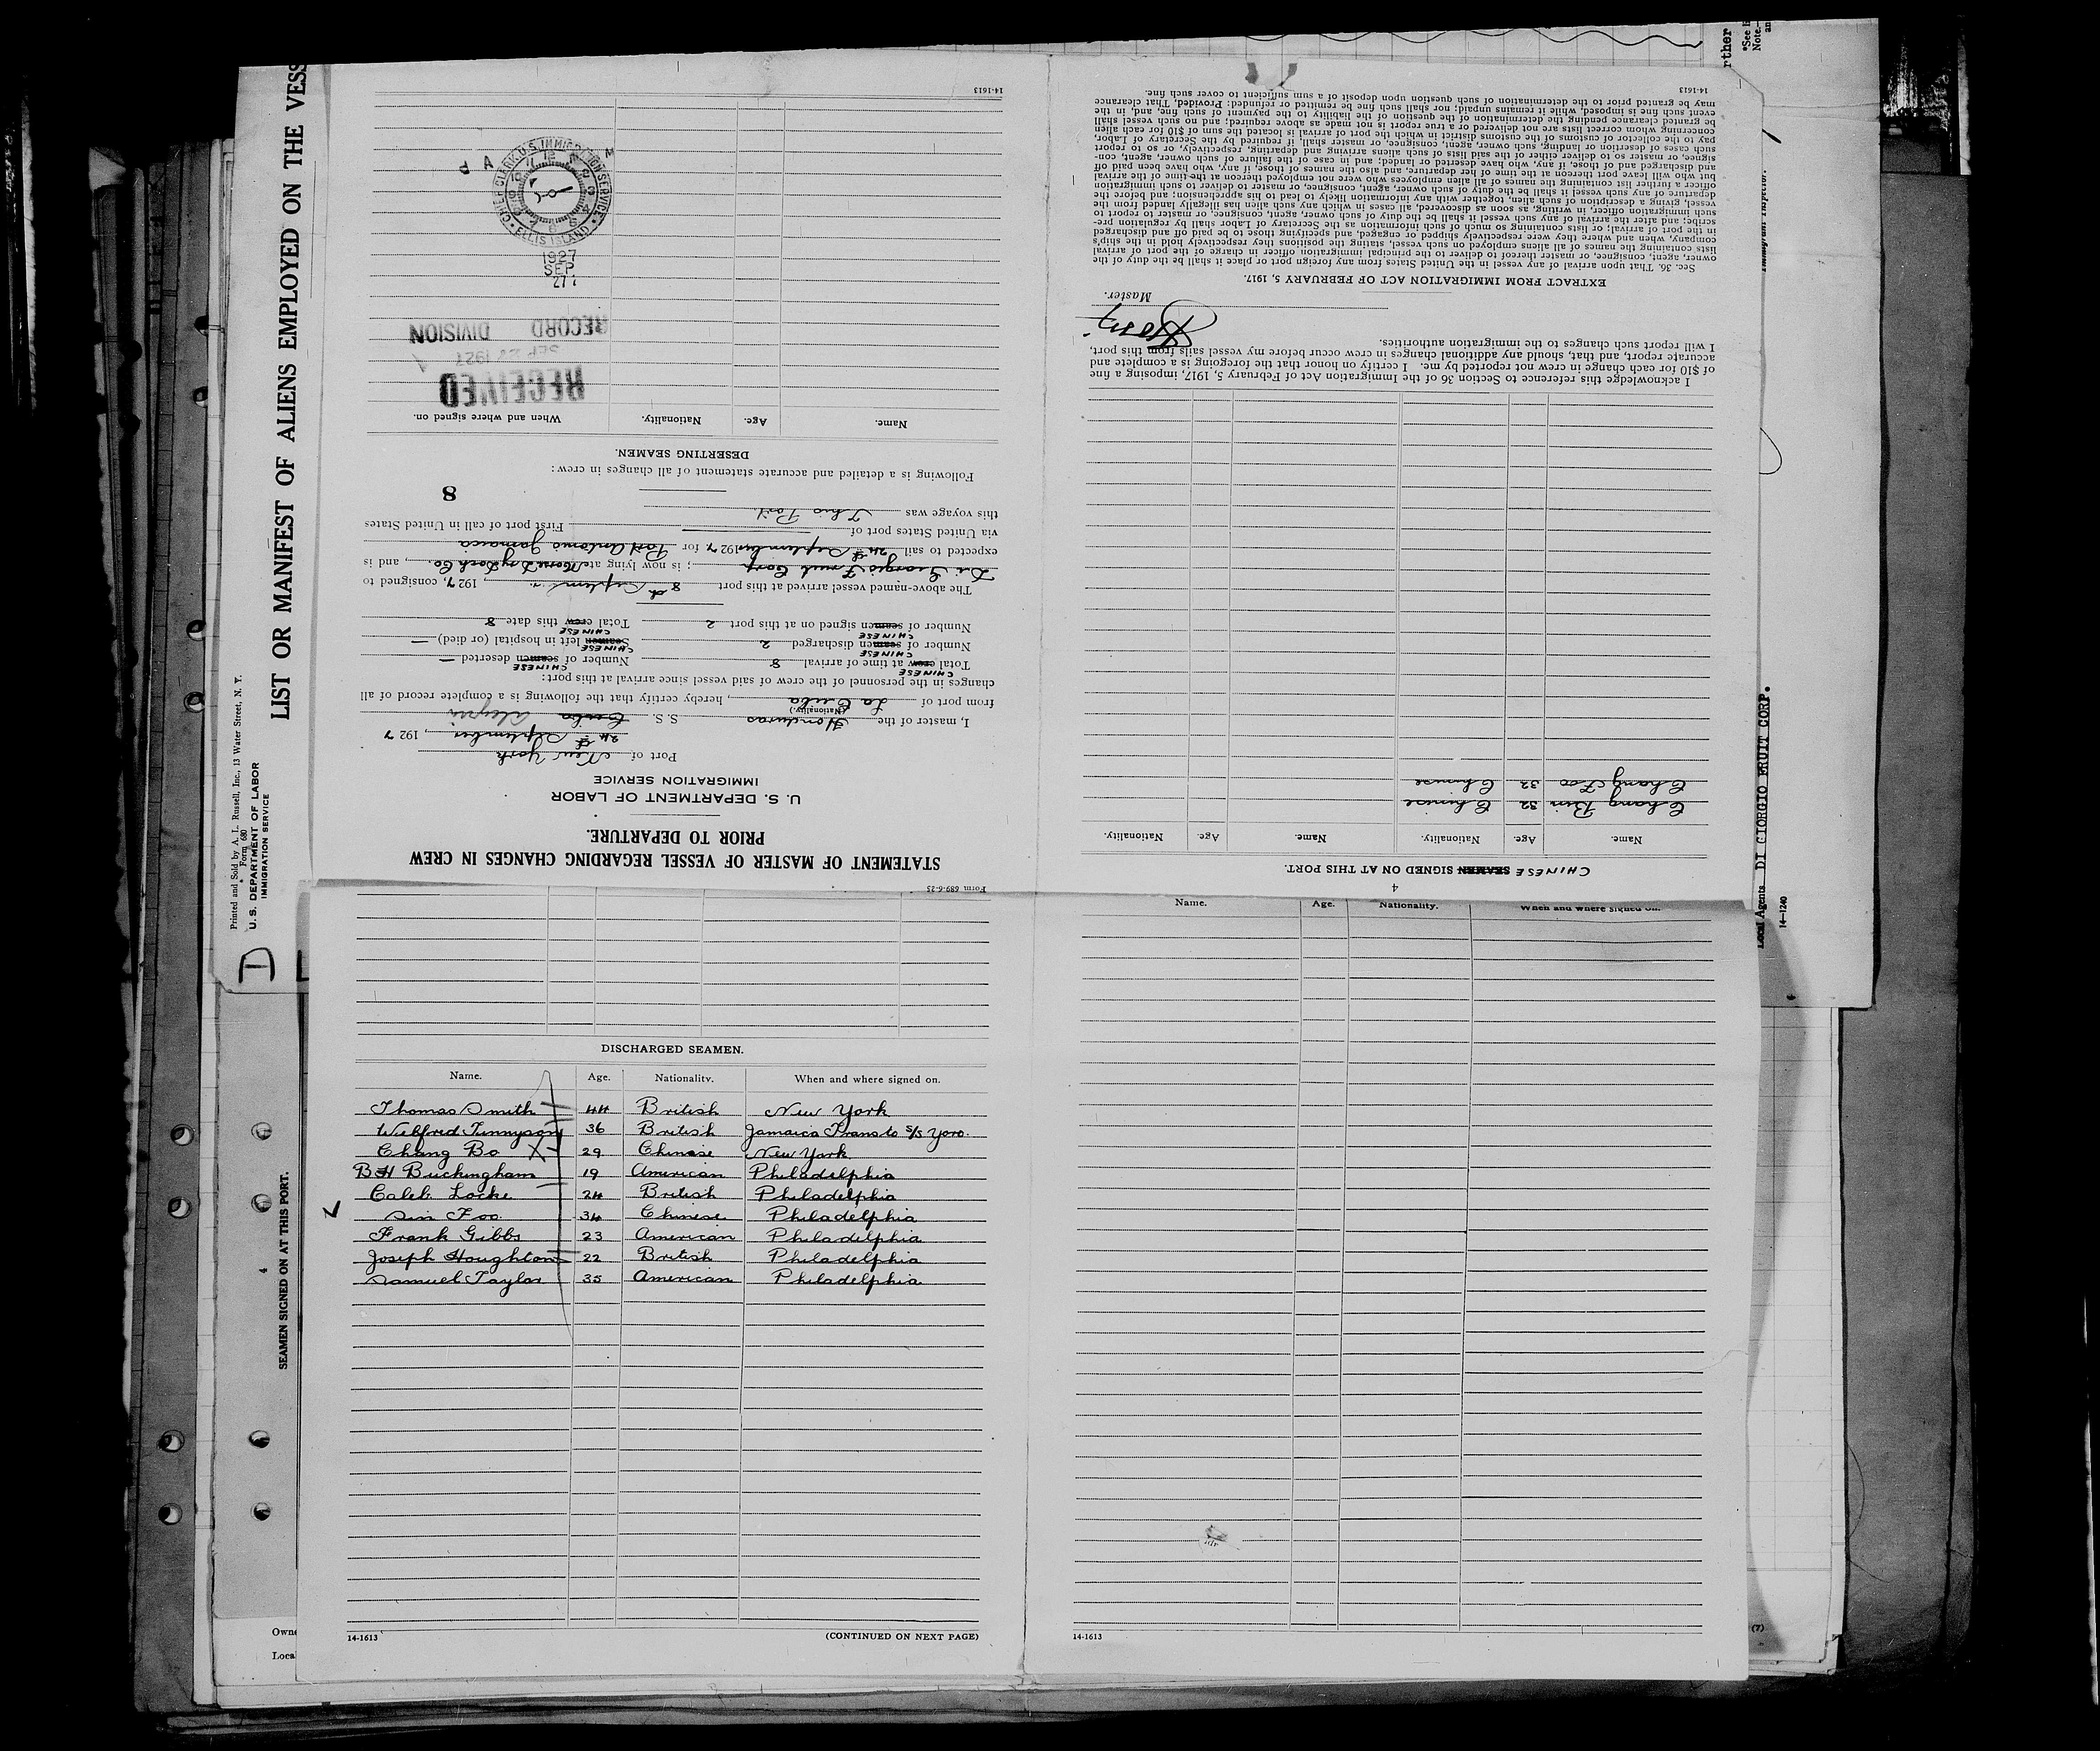 LIST OR MANIFEST OF ALIENS EMPLOYED ON THE VESS
Printed and Sold by A. L. Russell, Inc., 13 Water Street, N. Y.
Form 680
U. S. DEPARTMENT OF LABOR
IMMIGRATION SERVICE
D
4
SEAMEN SIGNED ON AT THIS PORT.
Owne
Loca
Form 689-6-25
STATEMENT OF MASTER OF VESSEL REGARDING CHANGES IN CREW
PRIOR TO DEPARTURE.
U. S. DEPARTMENT OF LABOR
IMMIGRATION SERVICE
Port of New York
24th September, 1927
I, master of the Honduras S. S. Ceiba
(Nationality.)
from port of La Ceiba, hereby certify that the following is a complete record of all
changes in the personnel of the crew of said vessel since arrival at this port:
CHINESE CHINESE
Total crew at time of arrival 8 Number of seamen deserted —
CHINESE CHINESE
Number of seamen discharged 2 Seamen left in hospital (or died) —
CHINESE CHINESE
Number of seamen signed on at this port 2 Total crew this date 8
The above-named vessel arrived at this port 8th September, 1927, consigned to
Di Giorgio Fruit Corp; is now lying at Morse Dry Dock Co., and is
expected to sail 24th September 1927 for Port Antonio Jamaica
via United States port of First port of call in United States
this voyage was This Port
8
Following is a detailed and accurate statement of all changes in crew:
DESERTING SEAMEN.
Name. Age. Nationality. When and where signed on.
RECEIVED
SEP 1927
RECORD DIVISION
1927
SEP
27
CHIEF CLERK U.S. IMMIGRATION SERVICE
ELLIS ISLAND
14-1613
4
CHINESE SEAMEN SIGNED ON AT THIS PORT.
Name. Age. Nationality. Name. Age. Nationality.
Chang Bin 32 Chinese
Chang Foo 32 Chinese
I acknowledge this reference to Section 36 of the Immigration Act of February 5, 1917, imposing a fine
of $10 for each change in crew not reported by me. I certify on honor that the foregoing is a complete and
accurate report, and that, should any additional changes in crew occur before my vessel sails from this port,
I will report such changes to the immigration authorities.
Master.
EXTRACT FROM IMMIGRATION ACT OF FEBRUARY 5, 1917.
Sec. 36. That upon arrival of any vessel in the United States from any foreign port or place it shall be the duty of the
owner, agent, consignee, or master thereof to deliver to the principal immigration officer in charge of the port of arrival
lists containing the names of all aliens employed on such vessel, stating the positions they respectively hold in the ship's
company, when and where they were respectively shipped or engaged, and specifying those to be paid off and discharged
in the port of arrival; or lists containing so much of such information as the Secretary of Labor shall by regulation pre-
scribe; and after the arrival of any such vessel it shall be the duty of such owner, agent, consignee, or master to report to
such immigration officer, in writing, as soon as discovered, all cases in which any such alien has illegally landed from the
vessel, giving a description of such alien, together with any information likely to lead to his apprehension; and before the
departure of any such vessel it shall be the duty of such owner, agent, consignee, or master to deliver to such immigration
officer a further list containing the names of all alien employees who were not employed thereon at the time of the arrival
but who will leave port thereon at the time of her departure, and also the names of those, if any, who have been paid off
and discharged and of those, if any, who have deserted or landed; and in case of the failure of such owner, agent, con-
signee, or master so to deliver either of the said lists of such aliens arriving and departing, respectively, or so to report
such cases of desertion or landing, such owner, agent, consignee, or master shall, if required by the Secretary of Labor,
pay to the collector of customs of the customs district in which the port of arrival is located the sum of $10 for each alien
concerning whom correct lists are not delivered or a true report is not made as above required; and no such vessel shall
be granted clearance pending the determination of the question of the liability to the payment of such fine, and, in the
event such fine is imposed, while it remains unpaid; nor shall such fine be remitted or refunded: Provided, That clearance
may be granted prior to the determination of such question upon deposit of a sum sufficient to cover such fine.
14-1613
DISCHARGED SEAMEN.
Name. Age. Nationality. When and where signed on.
Thomas Smith 44 British New York
Wilbfred Tunnyson 36 British Jamaica Trans to S/S Yoro.
Chang Bo X 29 Chinese New York
B H Buckingham 19 American Philadelphia
Caleb Locke 24 British Philadelphia
Sin Foo. 34 Chinese Philadelphia
Frank Gibbs 23 American Philadelphia
Joseph Houghton 22 British Philadelphia
Samuel Taylor 35 American Philadelphia
14-1613 (CONTINUED ON NEXT PAGE)
Name. Age. Nationality. When and where signed on.
14-1613
rther
*See
Note.—
an
Immigrant Inspector.
Local Agents DI GIORGIO FRUIT CORP.
14—1240
(7)